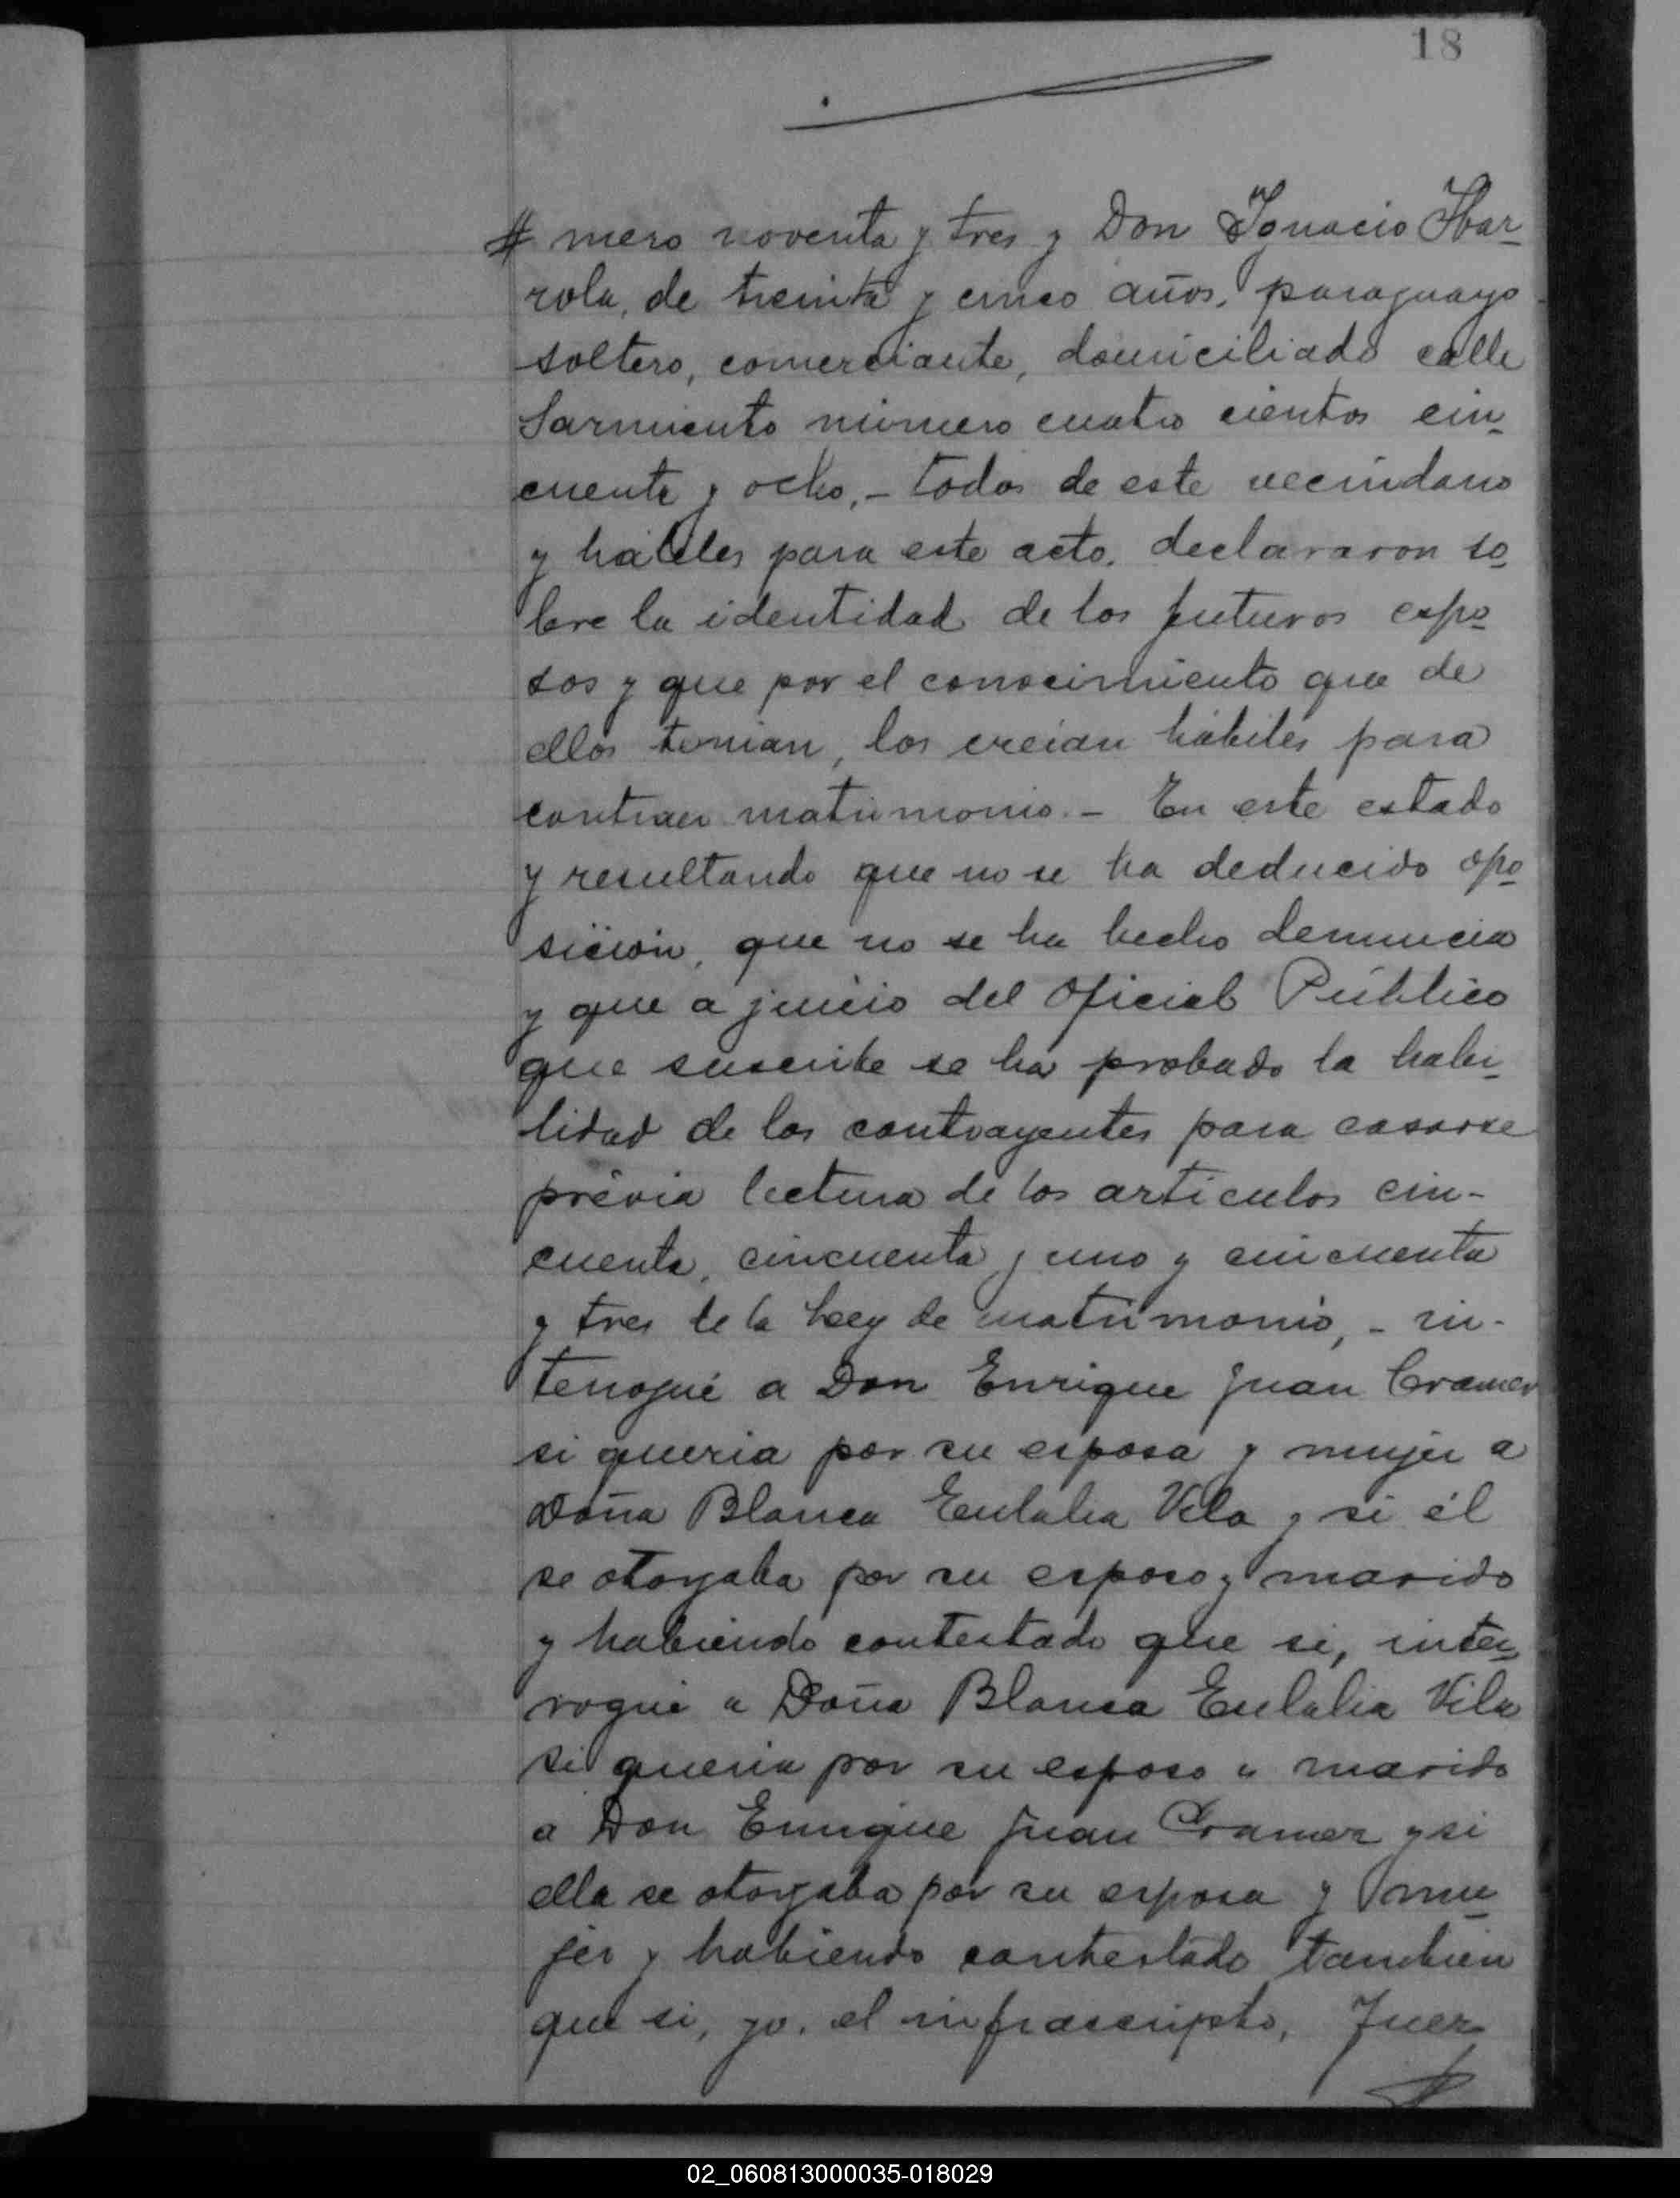 18
# mero noventa y tres y Don Ignacio Ibar-
rola, de treinta y cinco años, paraguayo
soltero, comerciante, domiciliado calle
Sarmiento número cuatro cientos cin-
cuenta y ocho,- todos de este vecindario
y hábiles para este acto, declararon so-
bre la identidad de los futuros espo-
sos y que por el conocimiento que de
ellos tenian, los creian hábiles para
contraer matrimonio.- En este estado
y resultando que no se ha deducido opo-
sición, que no se ha hecho denuncia
y que a juicio del Oficial Público
que suscribe se ha probado la habi-
lidad de los contrayentes para casarse
prévia lectura de los articulos cin-
cuenta, cincuenta y uno y cincuenta
y tres de la Ley de matrimonio,- in-
terrogué a Don Enrique Juan Cramer
si queria por su esposa y mujer a
Doña Blanca Eulalia Vila y si él
se otorgaba por su esposo y marido
y habiendo contestado que si, inter-
rogué a Doña Blanca Eulalia Vila
si queria por su esposo y marido
a Don Enrique Juan Cramer y si
ella se otorgaba por su esposa y mu-
jer y habiendo contestado tambien
que si, yo, el infrascripto, Juez
02_060813000035-018029